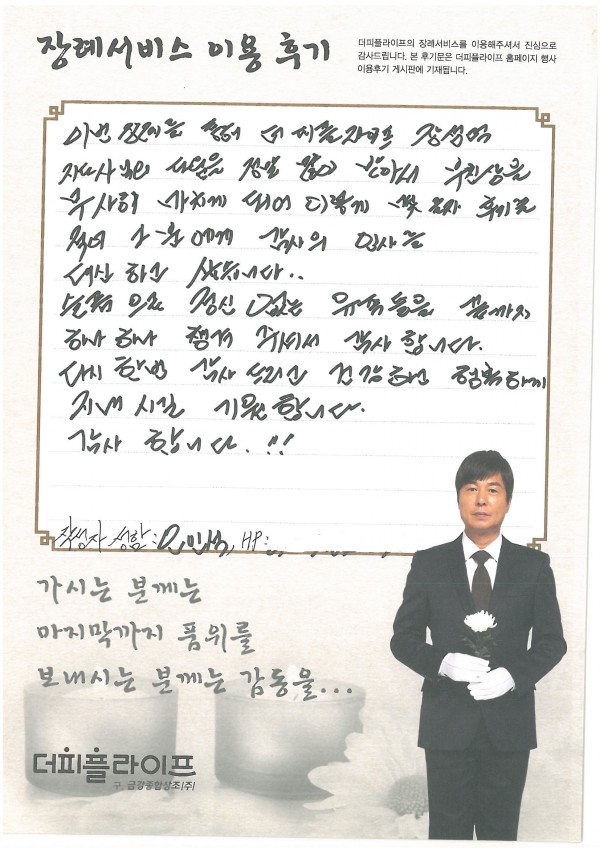 장례서비스 이용 후기
더피플라이프의 장례서비스를 이용해주셔서 진심으로
감사드립니다. 본 후기문은 더피플라이프 홈페이지 행사
이용후기 게시판에 기재됩니다.
이번 더피플라이프
도움을 정말 많이 받아서 부친상을
무사히 마치게 되어 이렇게 후기로
에게 감사의 인사를
대신 하고 싶습니다..
슬픔으로 정신 없는 유족들을 끝까지
하나 하나 챙겨 주셔서 감사 합니다.
다시 한번 감사 드리고 건강하고 행복하게
지내시길 기원합니다.
감사 합니다.!!
작성자 성함: HP:
가시는 분께는
마지막까지 품위를
보내시는 분께는 감동을...
더피플라이프
구. 금강종합상조(주)